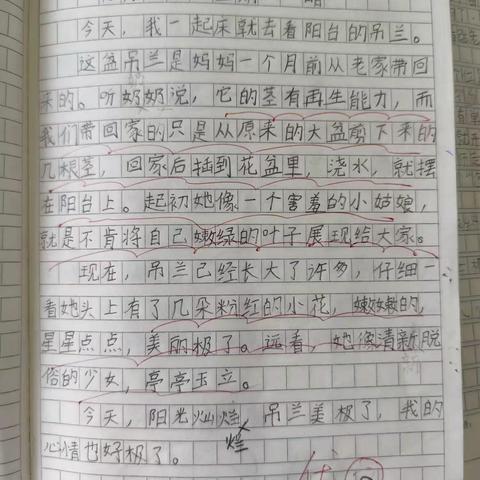 今天，我一起床就去看阳台的吊兰。
这盆吊兰是妈妈一个月前从老家带回
来的。听奶奶说，它的茎有再生能力，而
我们带回家的只是从原来的大盆剪下来的
几根茎，回家后插到花盆里，浇水，就摆
在阳台上。起初她像一个害羞的小姑娘，
就是不肯将自己嫩绿的叶子展现给大家。
现在，吊兰已经长大了许多，仔细一
看她头上有了几朵粉红的小花，嫩嫩的，
星星点点，美丽极了。远看，她像清新脱
俗的少女，亭亭玉立。
今天，阳光灿烂，吊兰美极了，我的
心情也好极了。
烂